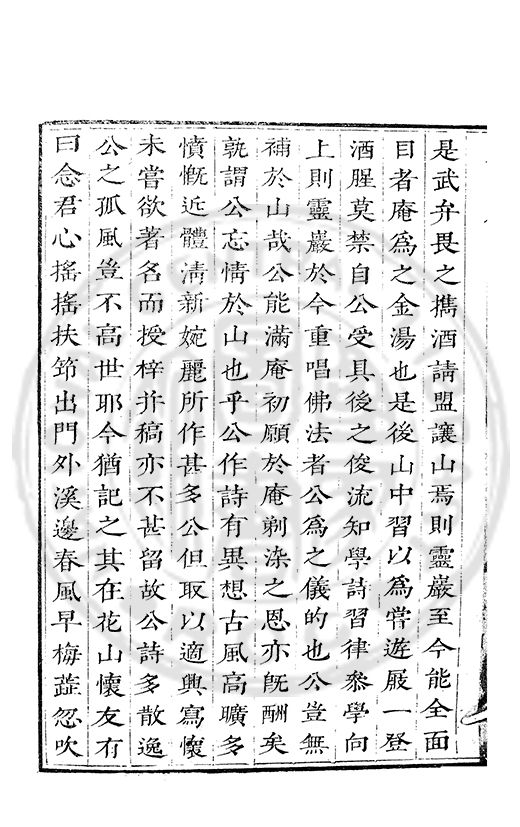 是武弁畏之攜酒請盟讓山焉則靈巖至今能全面
目者庵爲之金湯也是後山中習以爲常遊屐一登
酒腥莫禁自公受具後之俊流知學詩習律叅學向
上則靈巖於今重唱佛法者公爲之儀的也公豈無
補於山哉公能滿庵初願於庵剃染之恩亦旣酬矣
孰謂公忘情於山也乎公作詩有異想古風高曠多
憤慨近體淸新婉麗所作甚多公但取以適興寫懷
未嘗欲著名而授梓幷稿亦不甚留故公詩多散逸
公之孤風豈不高世耶今猶記之其在花山懷友有
曰念君心搖搖扶筇出門外溪邊春風早梅蕋忽吹